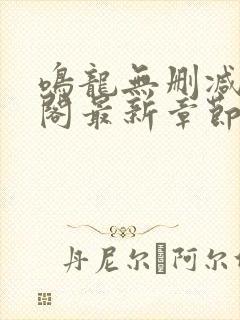 鳴龍無刪減
閣最新章節
丹尼尔 阿尔